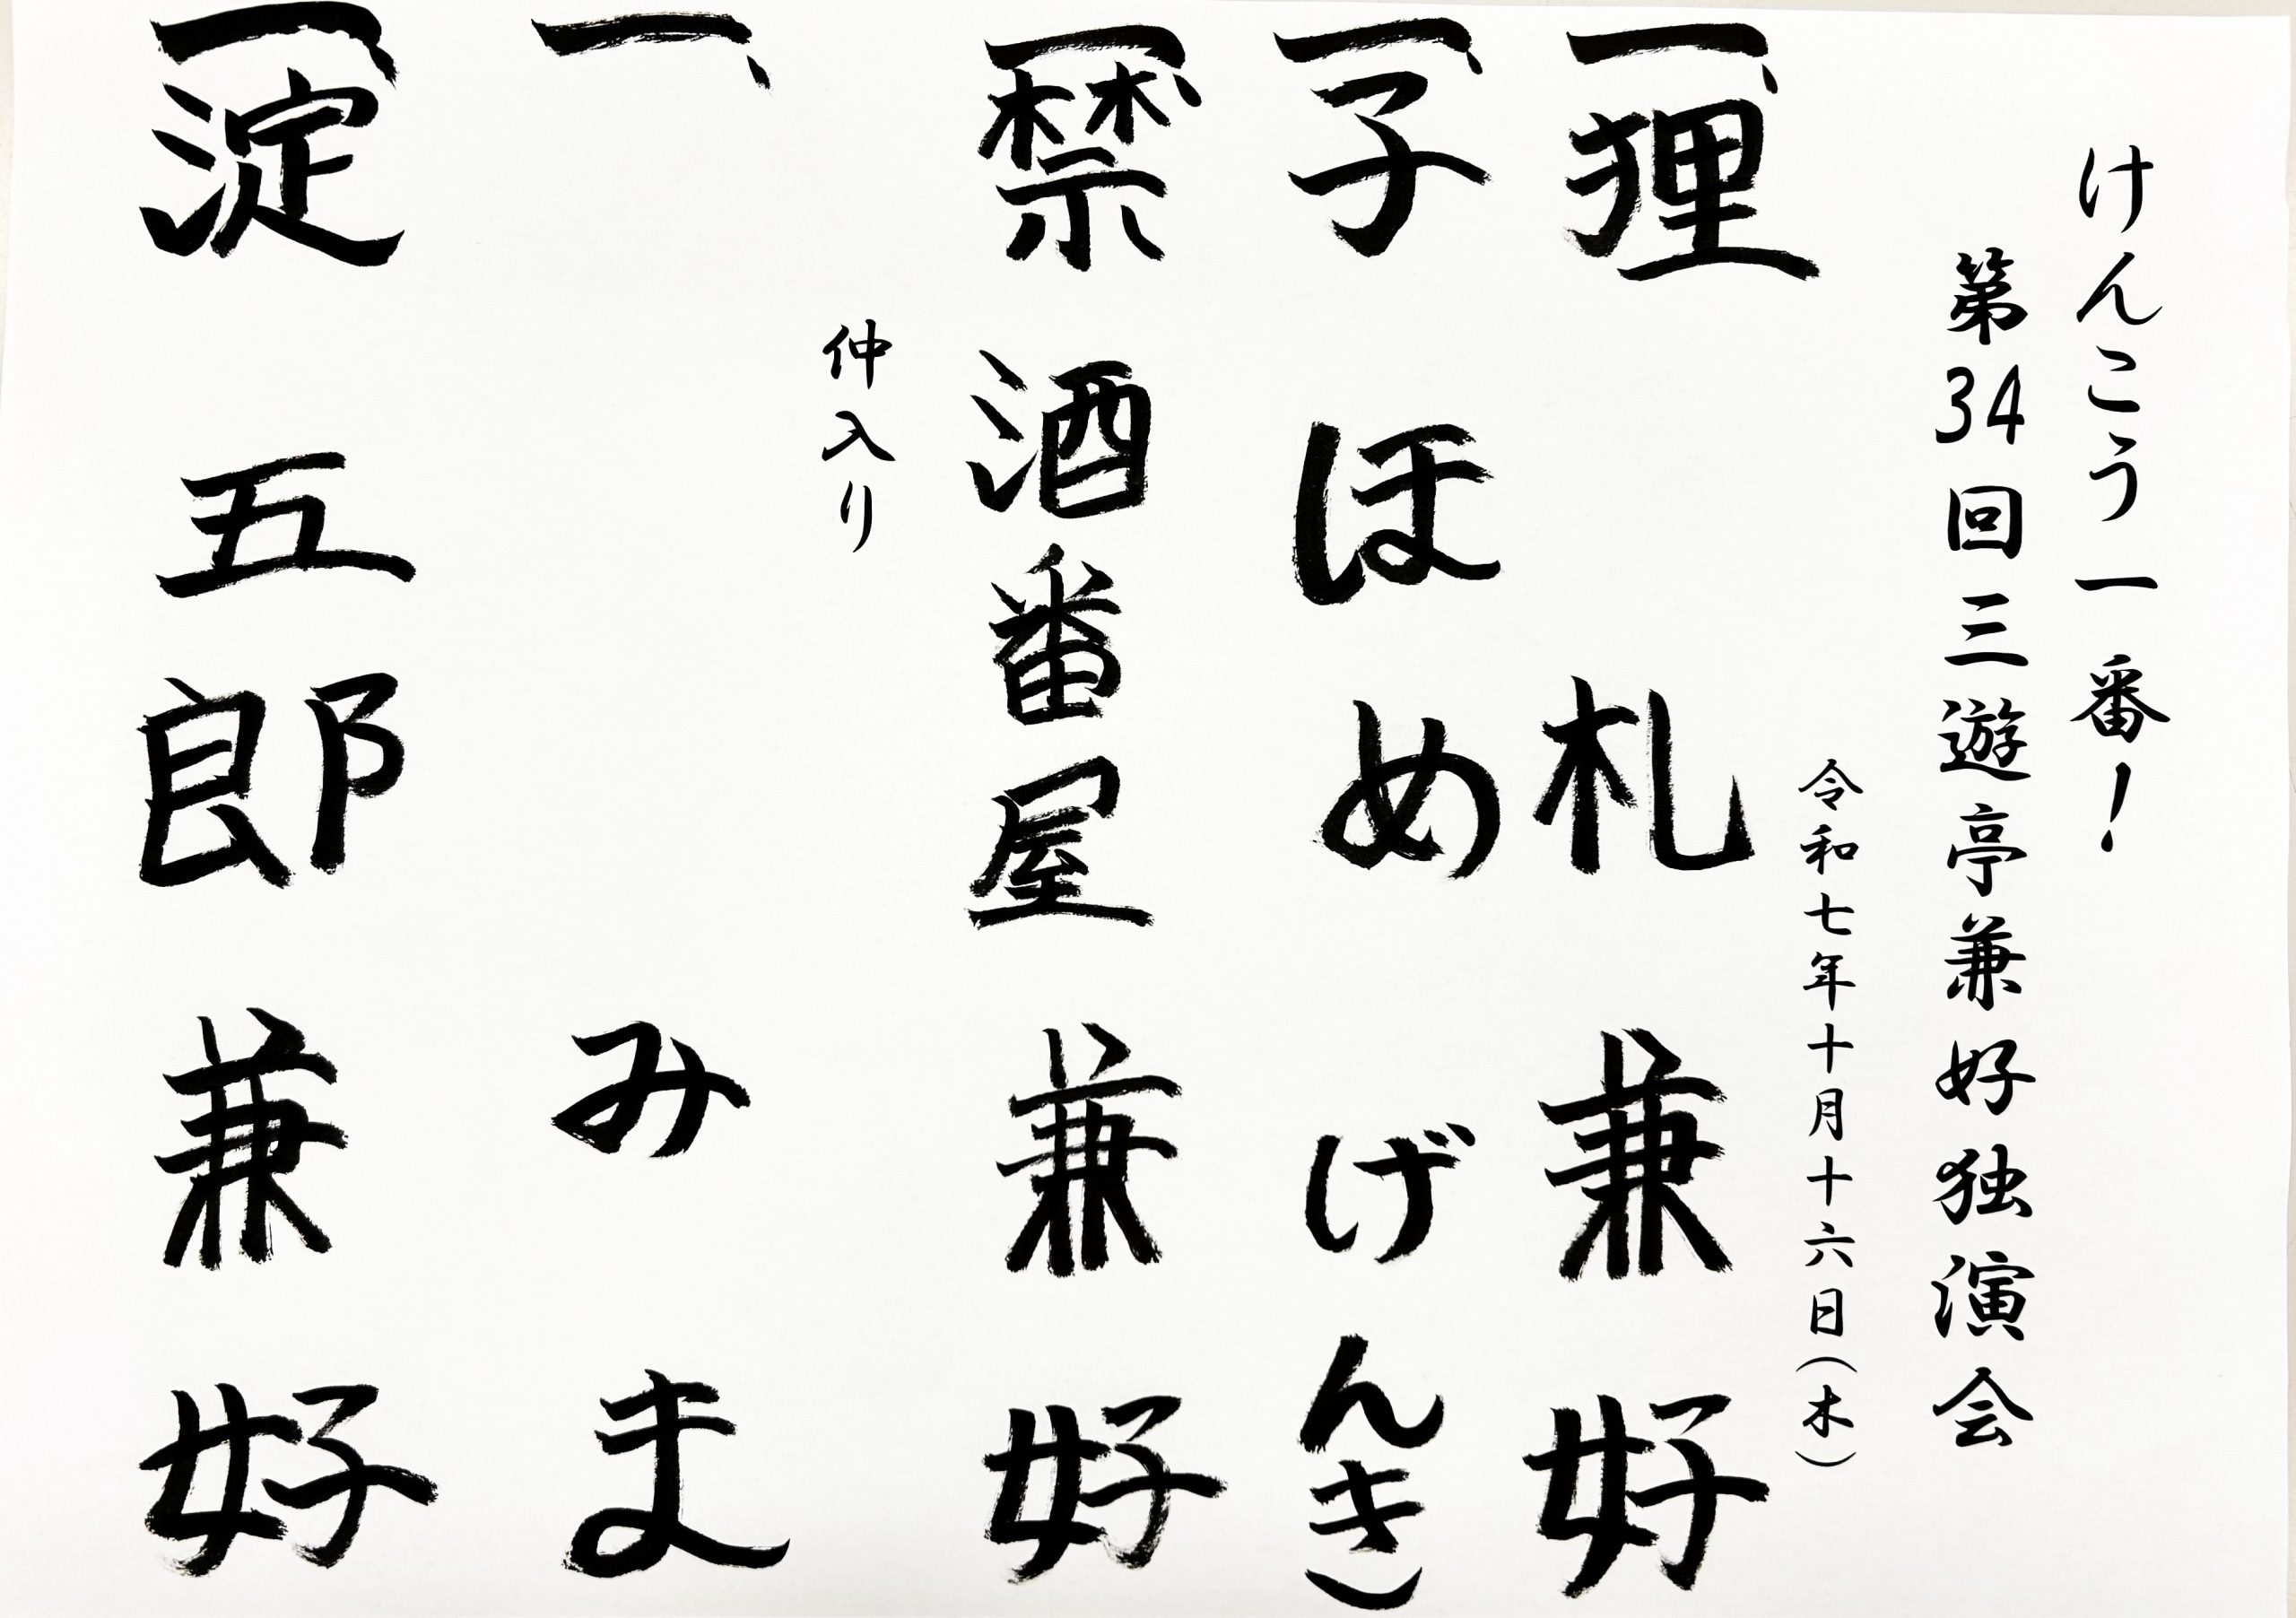 けんこう一番！
第34回三遊亭兼好独演会
令和七年十月十六日（木）
一、狸札 兼好
一、子ほめ げんき）
一、禁酒番屋 兼好
仲入り
一、 みま
一、淀五郎 兼好